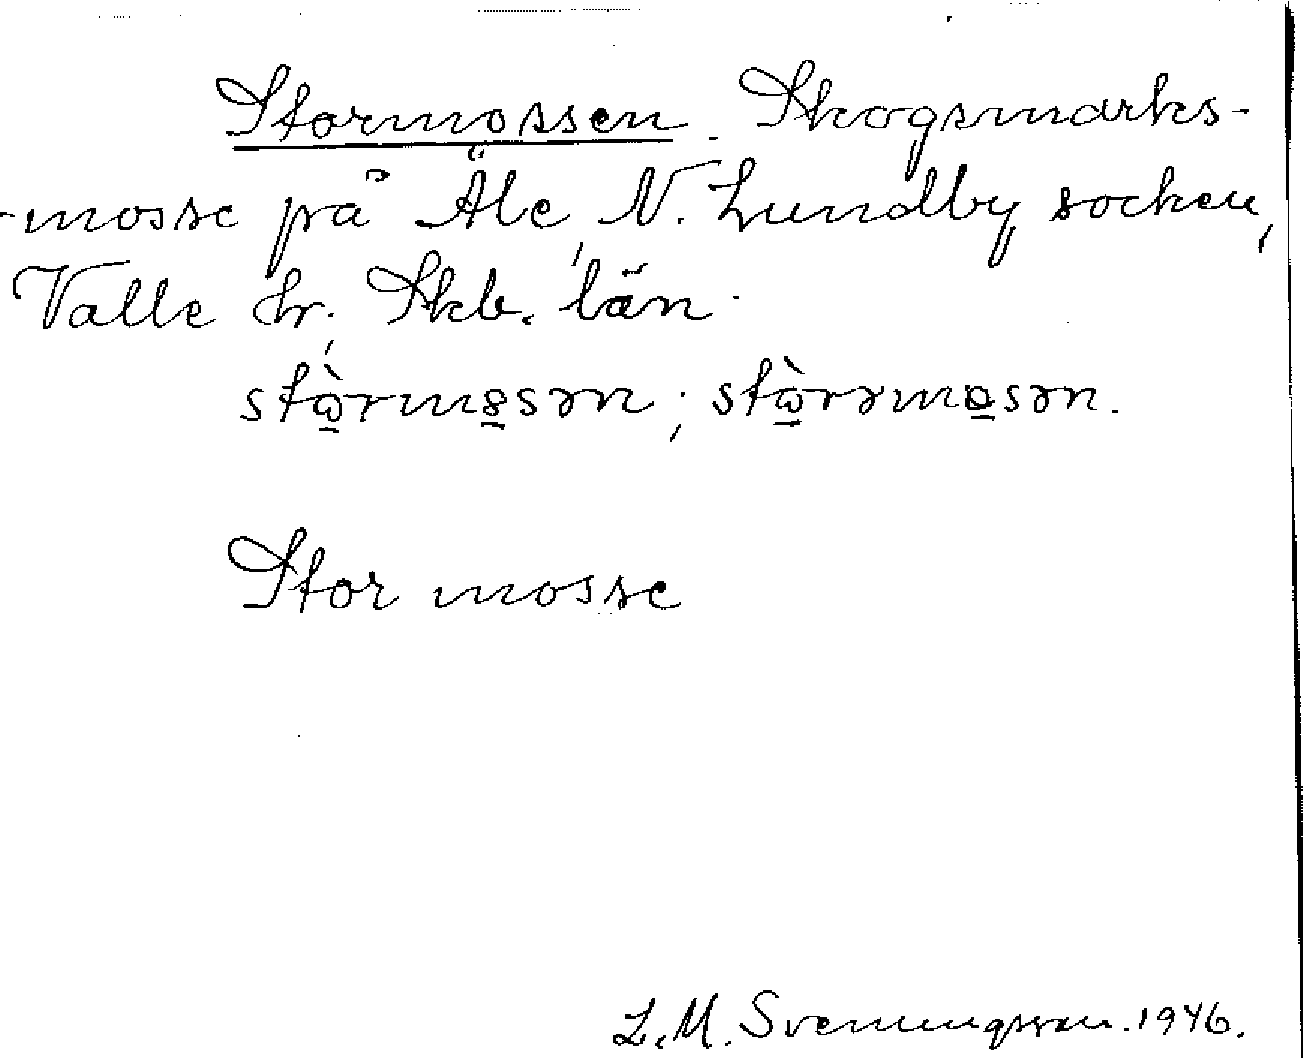 Stormossen. Skogsmarks-
-mosse på Äle, N. Lundby socken,
Valle hr. Skb. län.
stòrmosən; stòrəmosən.
Stor mosse
L. M. Svenungsson. 1946.